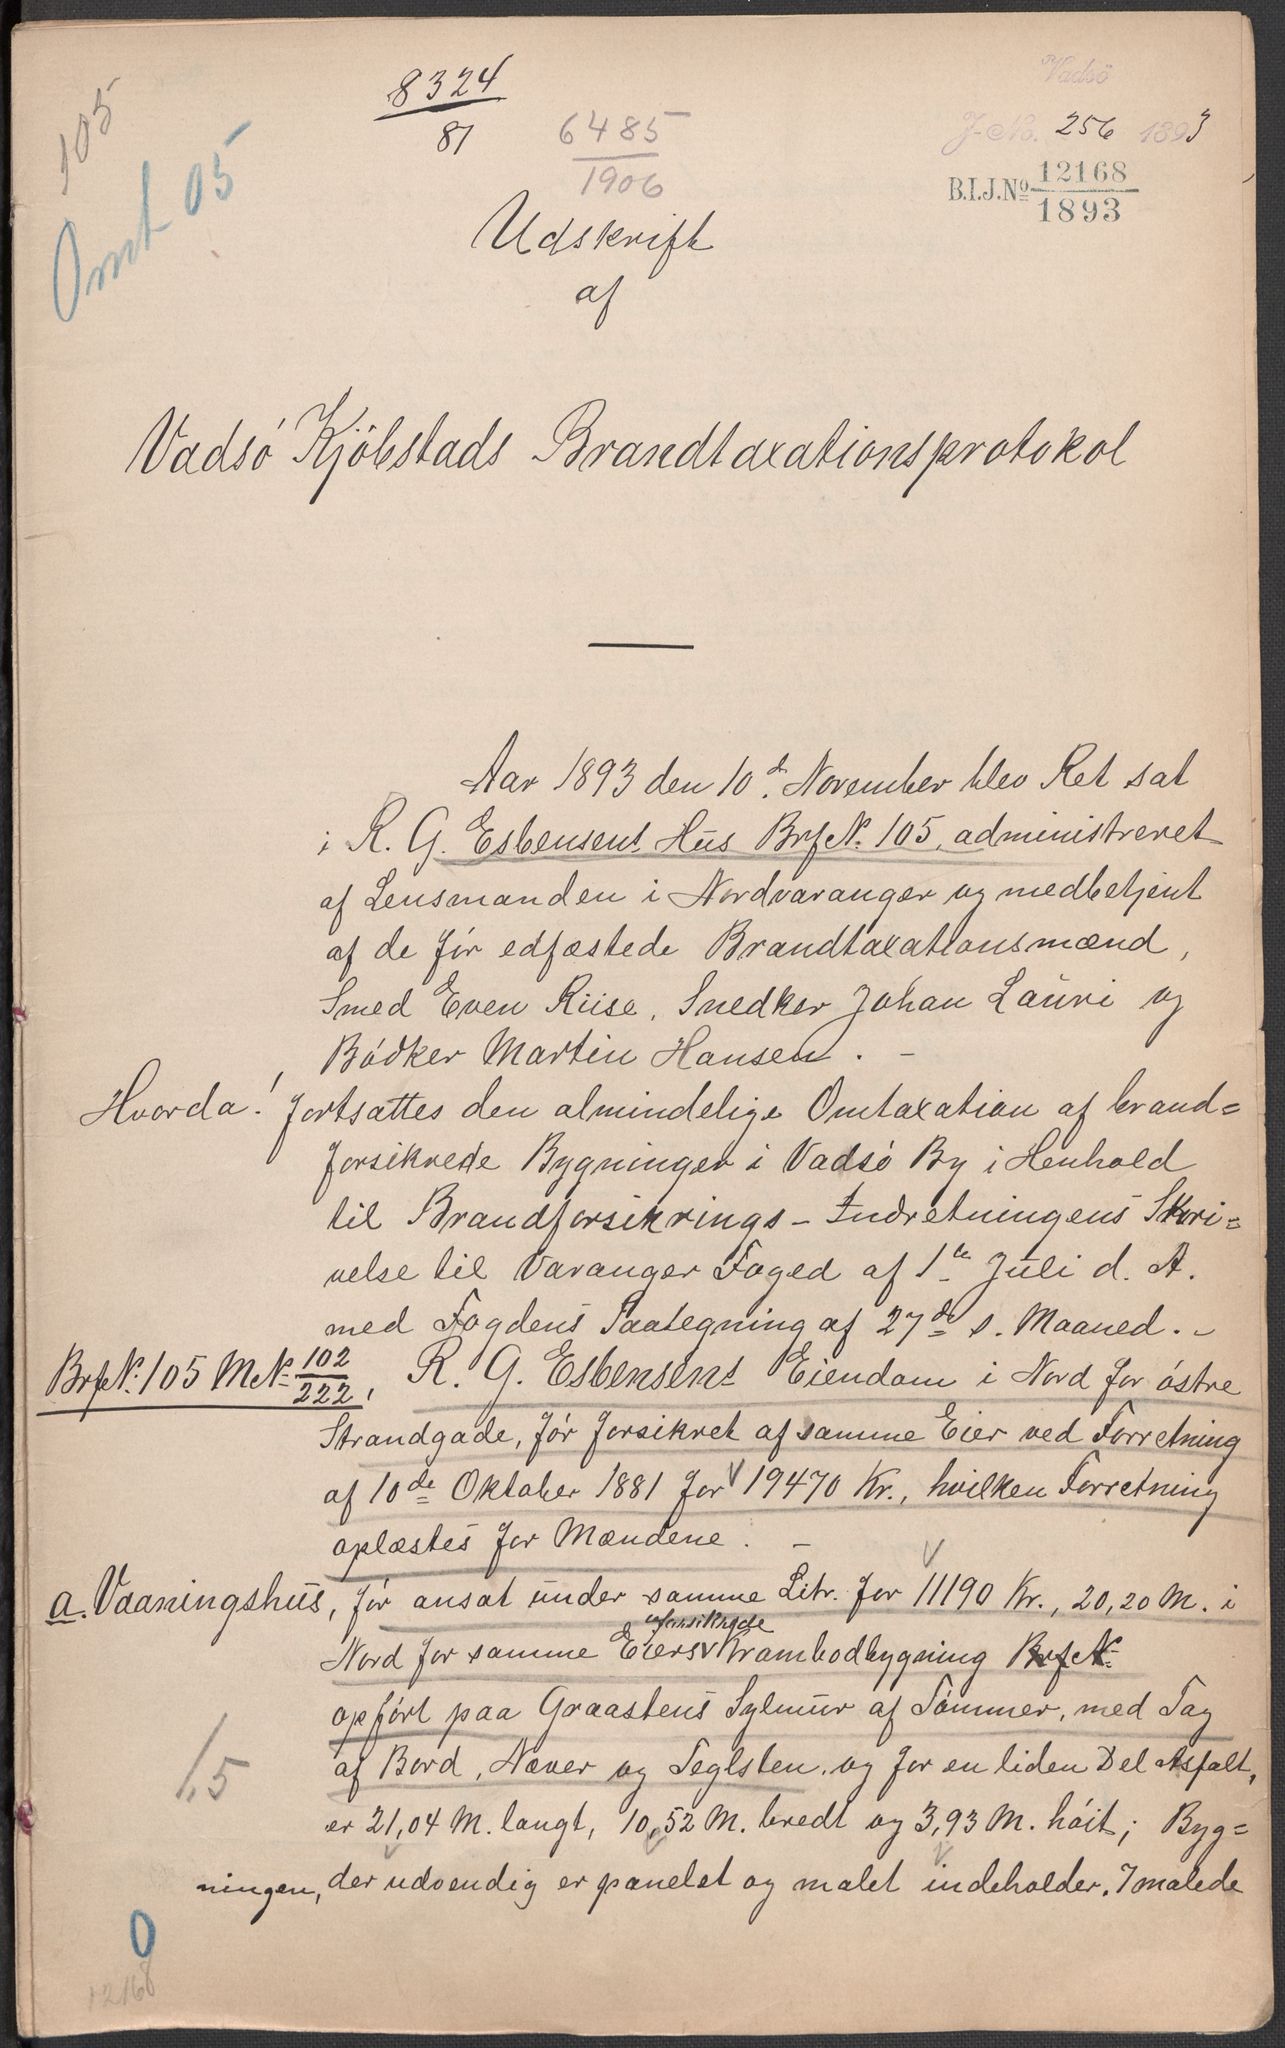 105
Omt 05
8324
81
6485
1906
Vadsö
J.-No. 256 1893
B.I.J.No 12168
1893
Udskrift
af
Vadsö Kjöbstads Brandtaxationsprotokol
Aar 1893 den 10de November blev Ret sat
i R. G. Esbensens Hus Brf.N. 105, administreret
af Lensmanden i Nordvaranger og medbetjent
af de før edfæstede Brandtaxationsmænd,
Smed Even Riise, Snedker Johan Lauri og
Bödker Martin Hansen. -
Hvorda! fortsattes den almindelige Omtaxation af brand=
forsikrede Bygninger i Vadsö By i Henhold
til Brandforsikrings-Indretningens Skri=
velse til Varanger Foged af 1ste Juli d. A.
med Fogdens Paategning af 27de s. Maaned. -
Brf.N. 105 M.N. 102
222, R. G. Esbensens Eiendom i Nord for östre
Strandgade, før forsikret af samme Eier ved Forretning
af 10de Oktober 1881 for 19470 Kr., hvilken Forretning
oplæstes for Mændene. -
a. Vaaningshus, før ansat under samme Litr. for 11190 Kr., 20,20 M. i
uforsikrede
Nord for samme Eiers Krambodbygning Brf.N.
opført paa Graastens Sylmur af Tömmer, med Tag
af Bord, Næver og Teglsten, og for en liden Del Asfalt,
er 21,04 M. langt, 10,52 M. bredt og 3,93 M. höit; Byg=
ningen, der udvendig er panelet og malet indeholder. 7 malede
1.5
0
12168